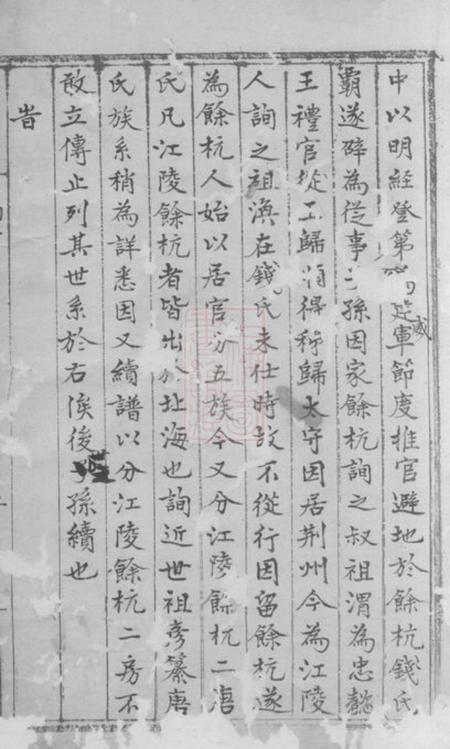 中以明經登第 武軍節度推官避地於餘杭錢氏
霸遂辟為從事 孫因家餘杭詢之叔祖渭為忠懿
王禮官從王歸 得秭歸太守因居荆州今為江陵
人詢之祖渙在錢氏未仕時故不從行因留餘杭遂
為餘杭人始以居官分五族今又分江陵餘杭二唐
氏凡江陵餘杭者皆出於北海也詢近世祖彥纂唐
氏族系稍為詳悉因又續譜以分江陵餘杭二房不
敢立傳止列其世系於右俟後 孫續也
旹